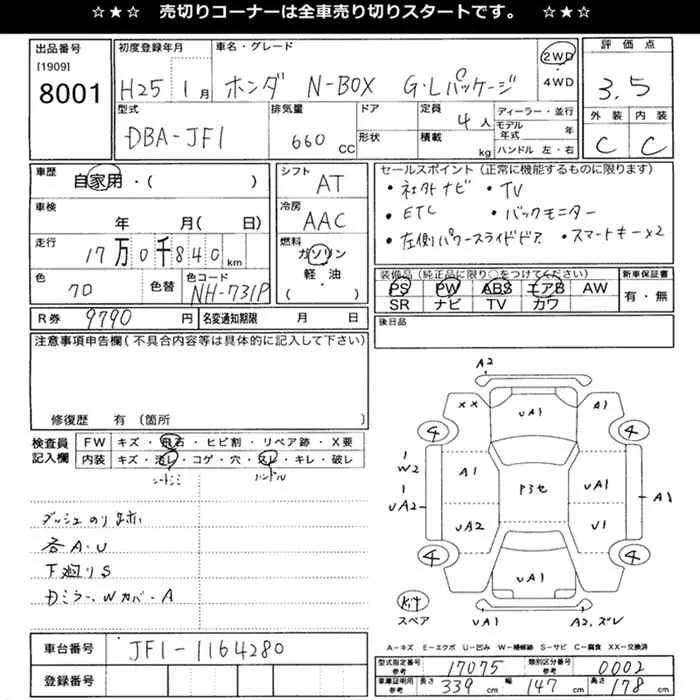 ☆★☆ 売切りコーナーは全車売り切りスタートです。 ☆★☆
出品番号
[1909]
8001
初度登録年月
H25 1月
車名・グレード
ホンダ N-BOX G・Lパッケージ
2WD
・
4WD
評価点
3.5
外装 内装
C C
型式
DBA-JF1
排気量
660 CC
ドア
形状
定員
4人
積載
kg
ディーラー・並行
モデル年式 年
ハンドル 左・右
車歴
自家用・( )
車検
年 月( 日)
走行
17万0千840km
色
70
色替
色コード
NH-731P
シフト
AT
冷房
AAC
燃料
ガソリン
軽・油
・( )
セールスポイント(正常に機能するものに限ります)
・社外ナビ ・TV
・ETC ・バックモニター
・左側パワースライドドア ・スマートキーx2
装備品(純正品に限り○をつけてください)
PS PW ABS エアB AW
SR ナビ TV カワ
新車保証書
有・無
R券 9790円
名変通知期限 月 日
後日品
注意事項申告欄(不具合内容等は具体的に記入して下さい)
修復歴 有 〔箇所 〕
検査員
記入欄
FW キズ・飛石・ヒビ割・リペア跡・X要
内装 キズ・汚レ・コゲ・穴・スレ・キレ・破レ
シートシミ ハンドル
ダッシュのり跡
各A・U
下廻りS
Dミラー、Wカバー・A
車台番号 JF1-1164280
登録番号
A2
XX UA1 A1
4 4
1
W2
A1 Pラセ UA1
1
UA2
A1
UA2 U1
4 4
UA1
キット
スペア
UA1 A2.ズレ
A-キズ E-エクボ U-凹み W-補修跡 S-サビ C-腐食 XX-交換済
型式指定番号
参考
17075
類別区分番号
参考
0002
車庫証明用
参考
長さ 339 幅 147 高さ 178 cm